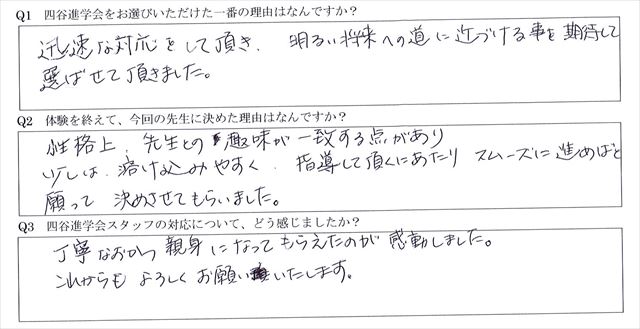 Q1 四谷進学会をお選びいただけた一番の理由はなんですか？
迅速な対応をして頂き、明るい将来への道に近づける事を期待して
選ばせて頂きました。
Q2 体験を終えて、今回の先生に決めた理由はなんですか？
性格上、先生との趣味が一致する点があり
少しは、溶け込みやすく、指導して頂くにあたり スムーズに進めばと
願って 決めさせてもらいました。
Q3 四谷進学会スタッフの対応について、どう感じましたか？
丁寧なおかつ親身になってもらえたのが感動しました。
これからもよろしくお願いいたします。